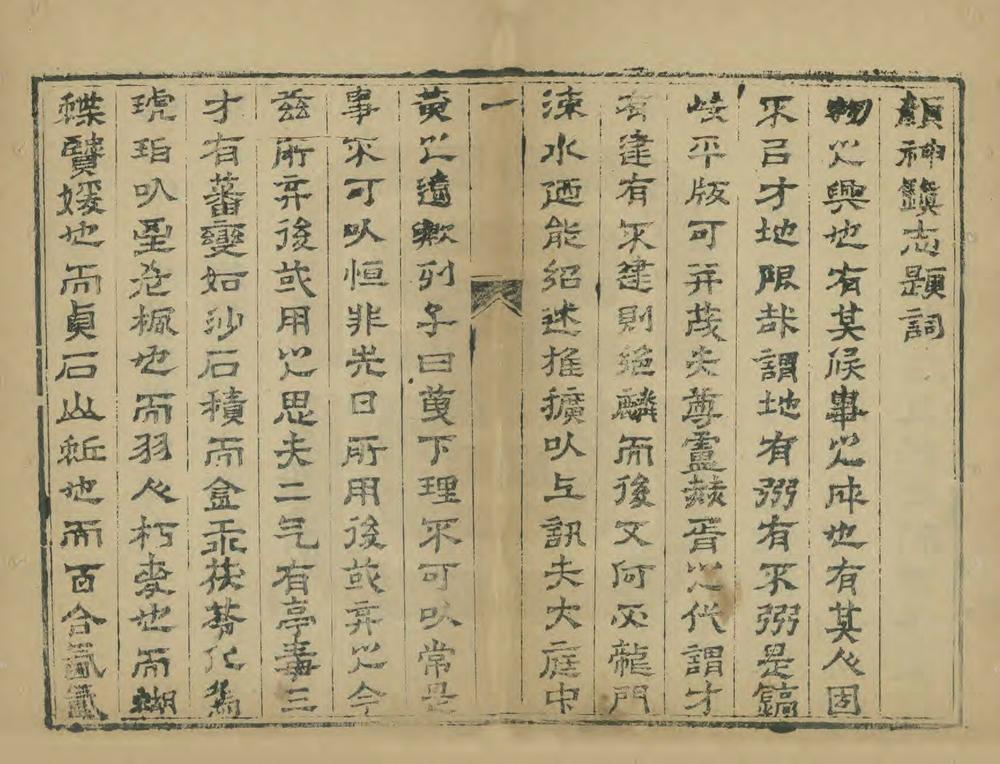 顏神鎮志題詞
物之興也有其候畢之成也有其人固
不㠯才地限哉謂地有弼有不弼是鎬
岐平版可並茂夫尊盧赫胥之代謂才
有建有不建則絕麟而後文何必龍門
涑水廼能紹述推擴以上訊夫大庭中
一
黃之遺歟列子曰蔓下理不可以常是
事不可以恒非先日所用後或弃之今
茲所弃後或用之思夫二气有亭毒三
才有蕃變如沙石積而金汞扶㟢化為
琥珀叭堊老楓也而羽人朽麥也而蝴
蝶賢媛也而貞石山蚯也而百合